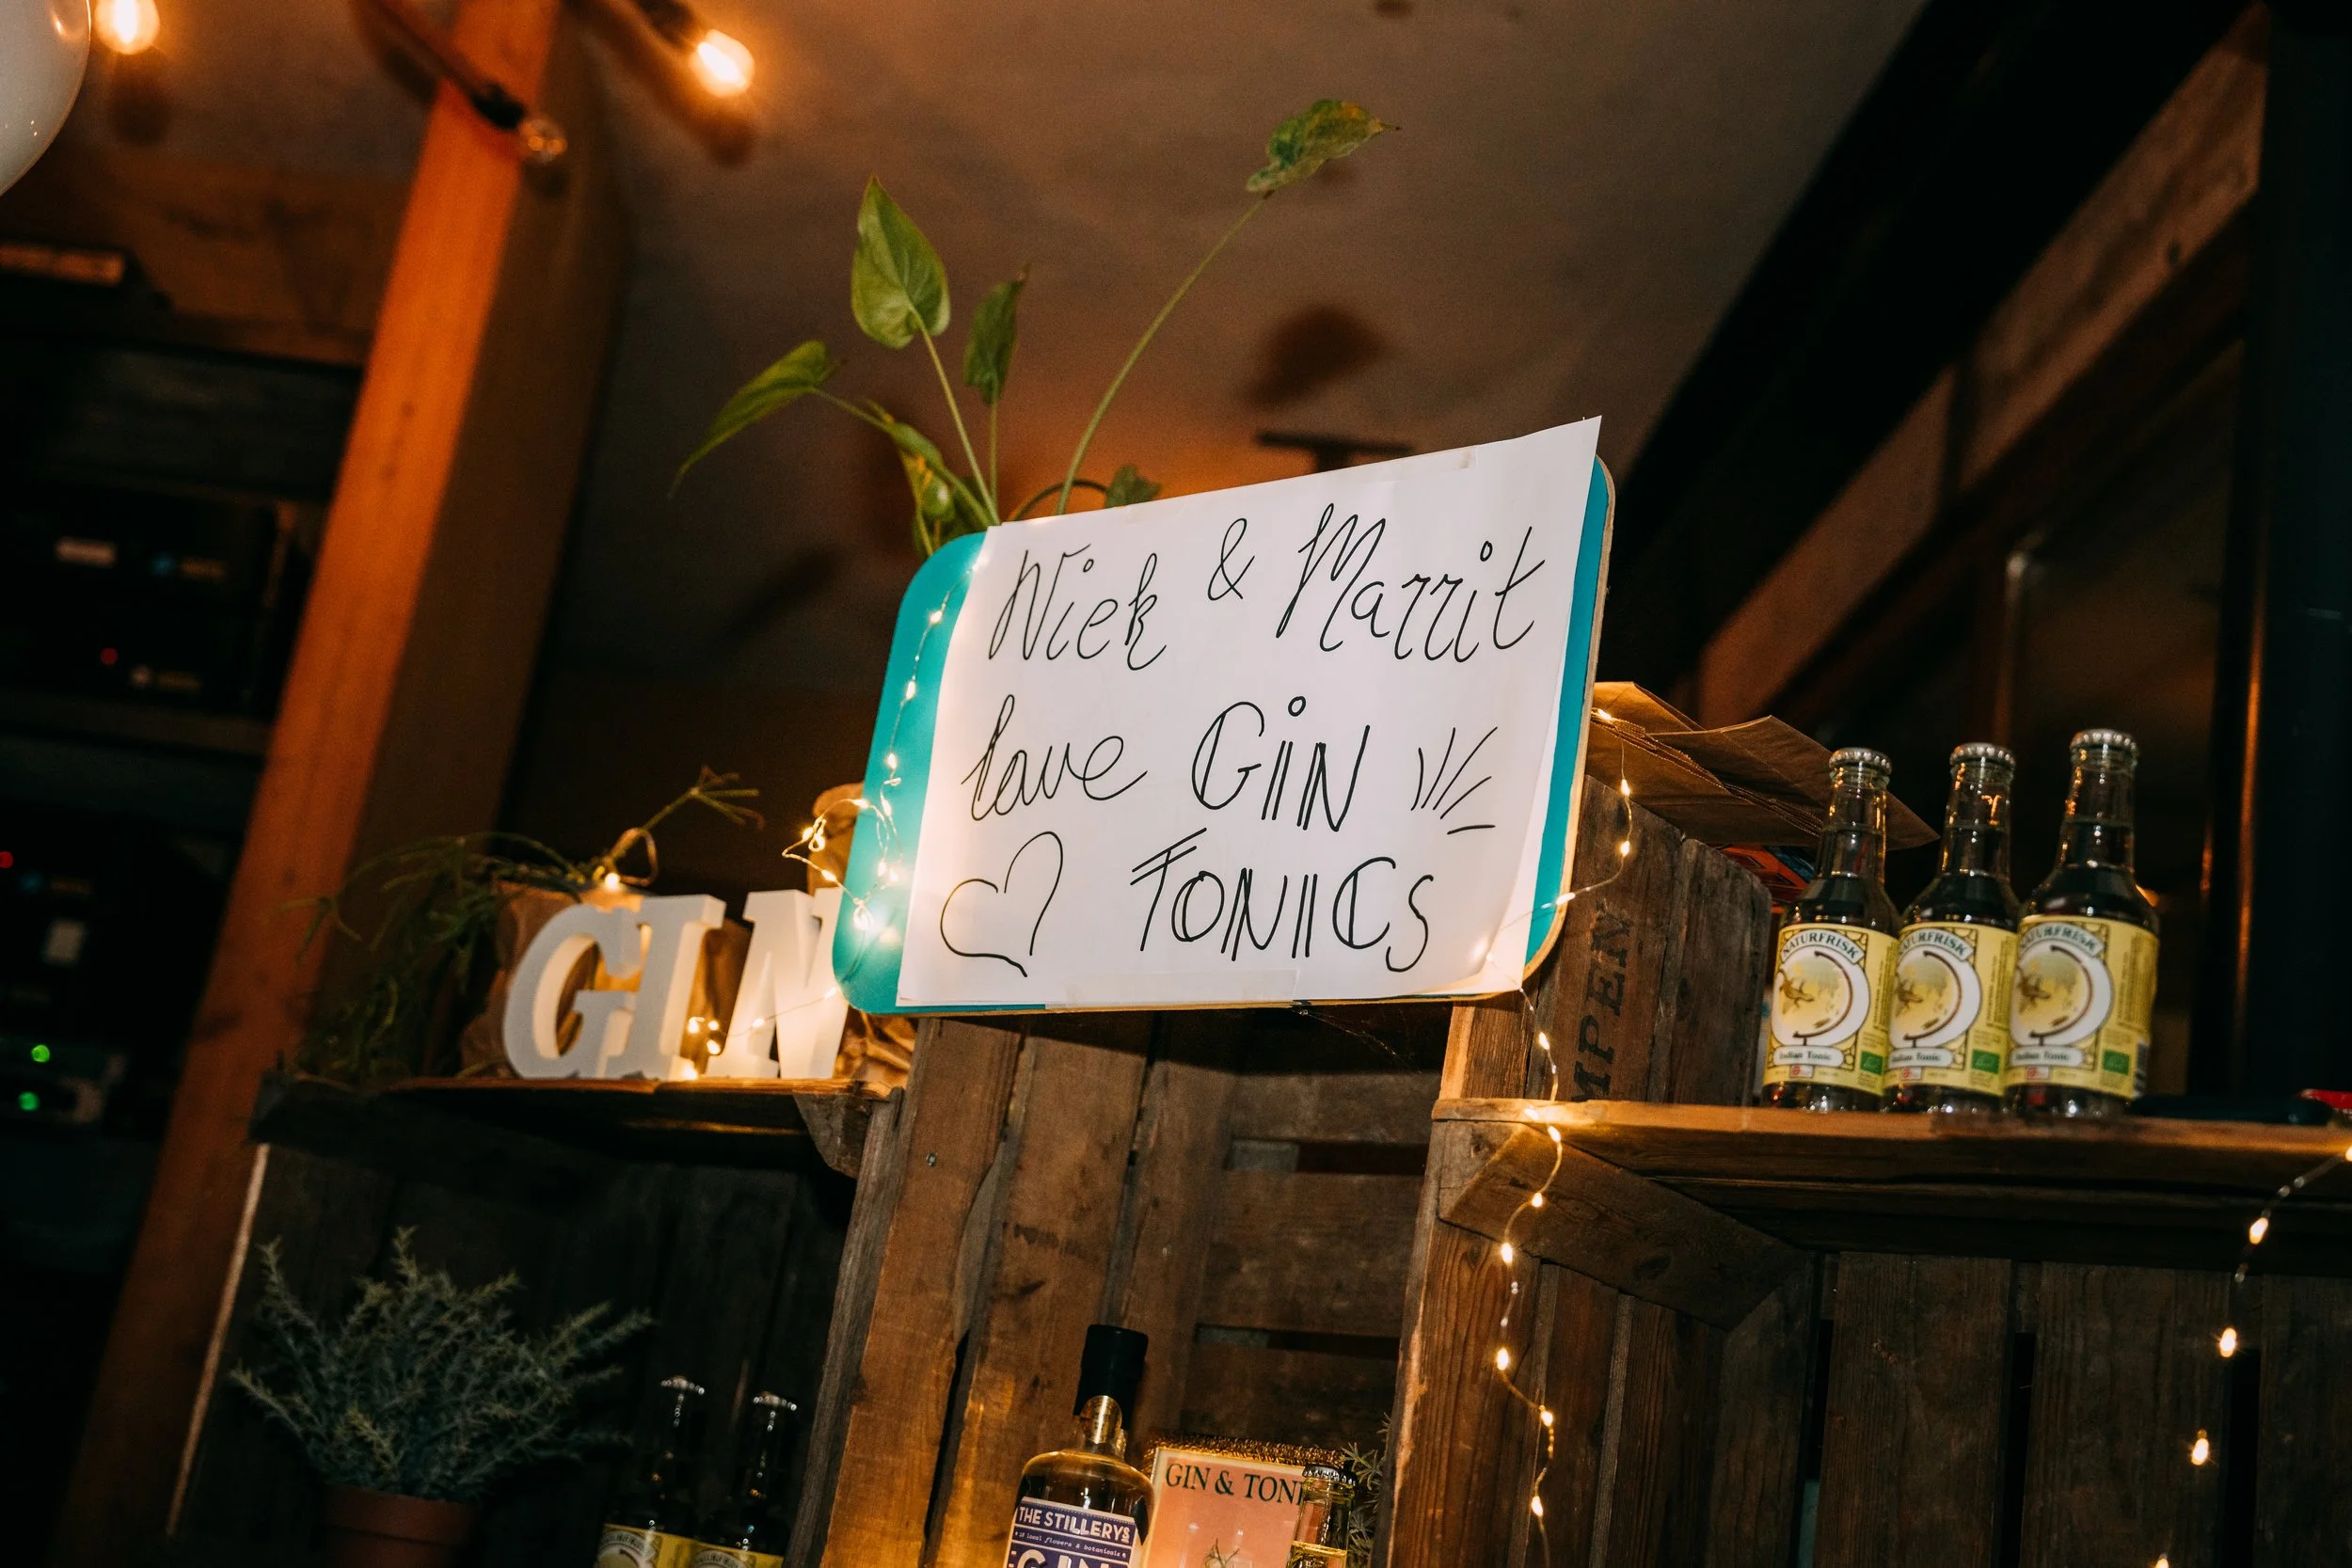 Niek & Marrit
love GIN
TONICS
GIN
MPEN
NATURFRISK
Indian Tonic
NATURFRISK
Indian Tonic
NATURFRISK
Indian Tonic
GIN & TONI
THE STILLERY'S
GIN